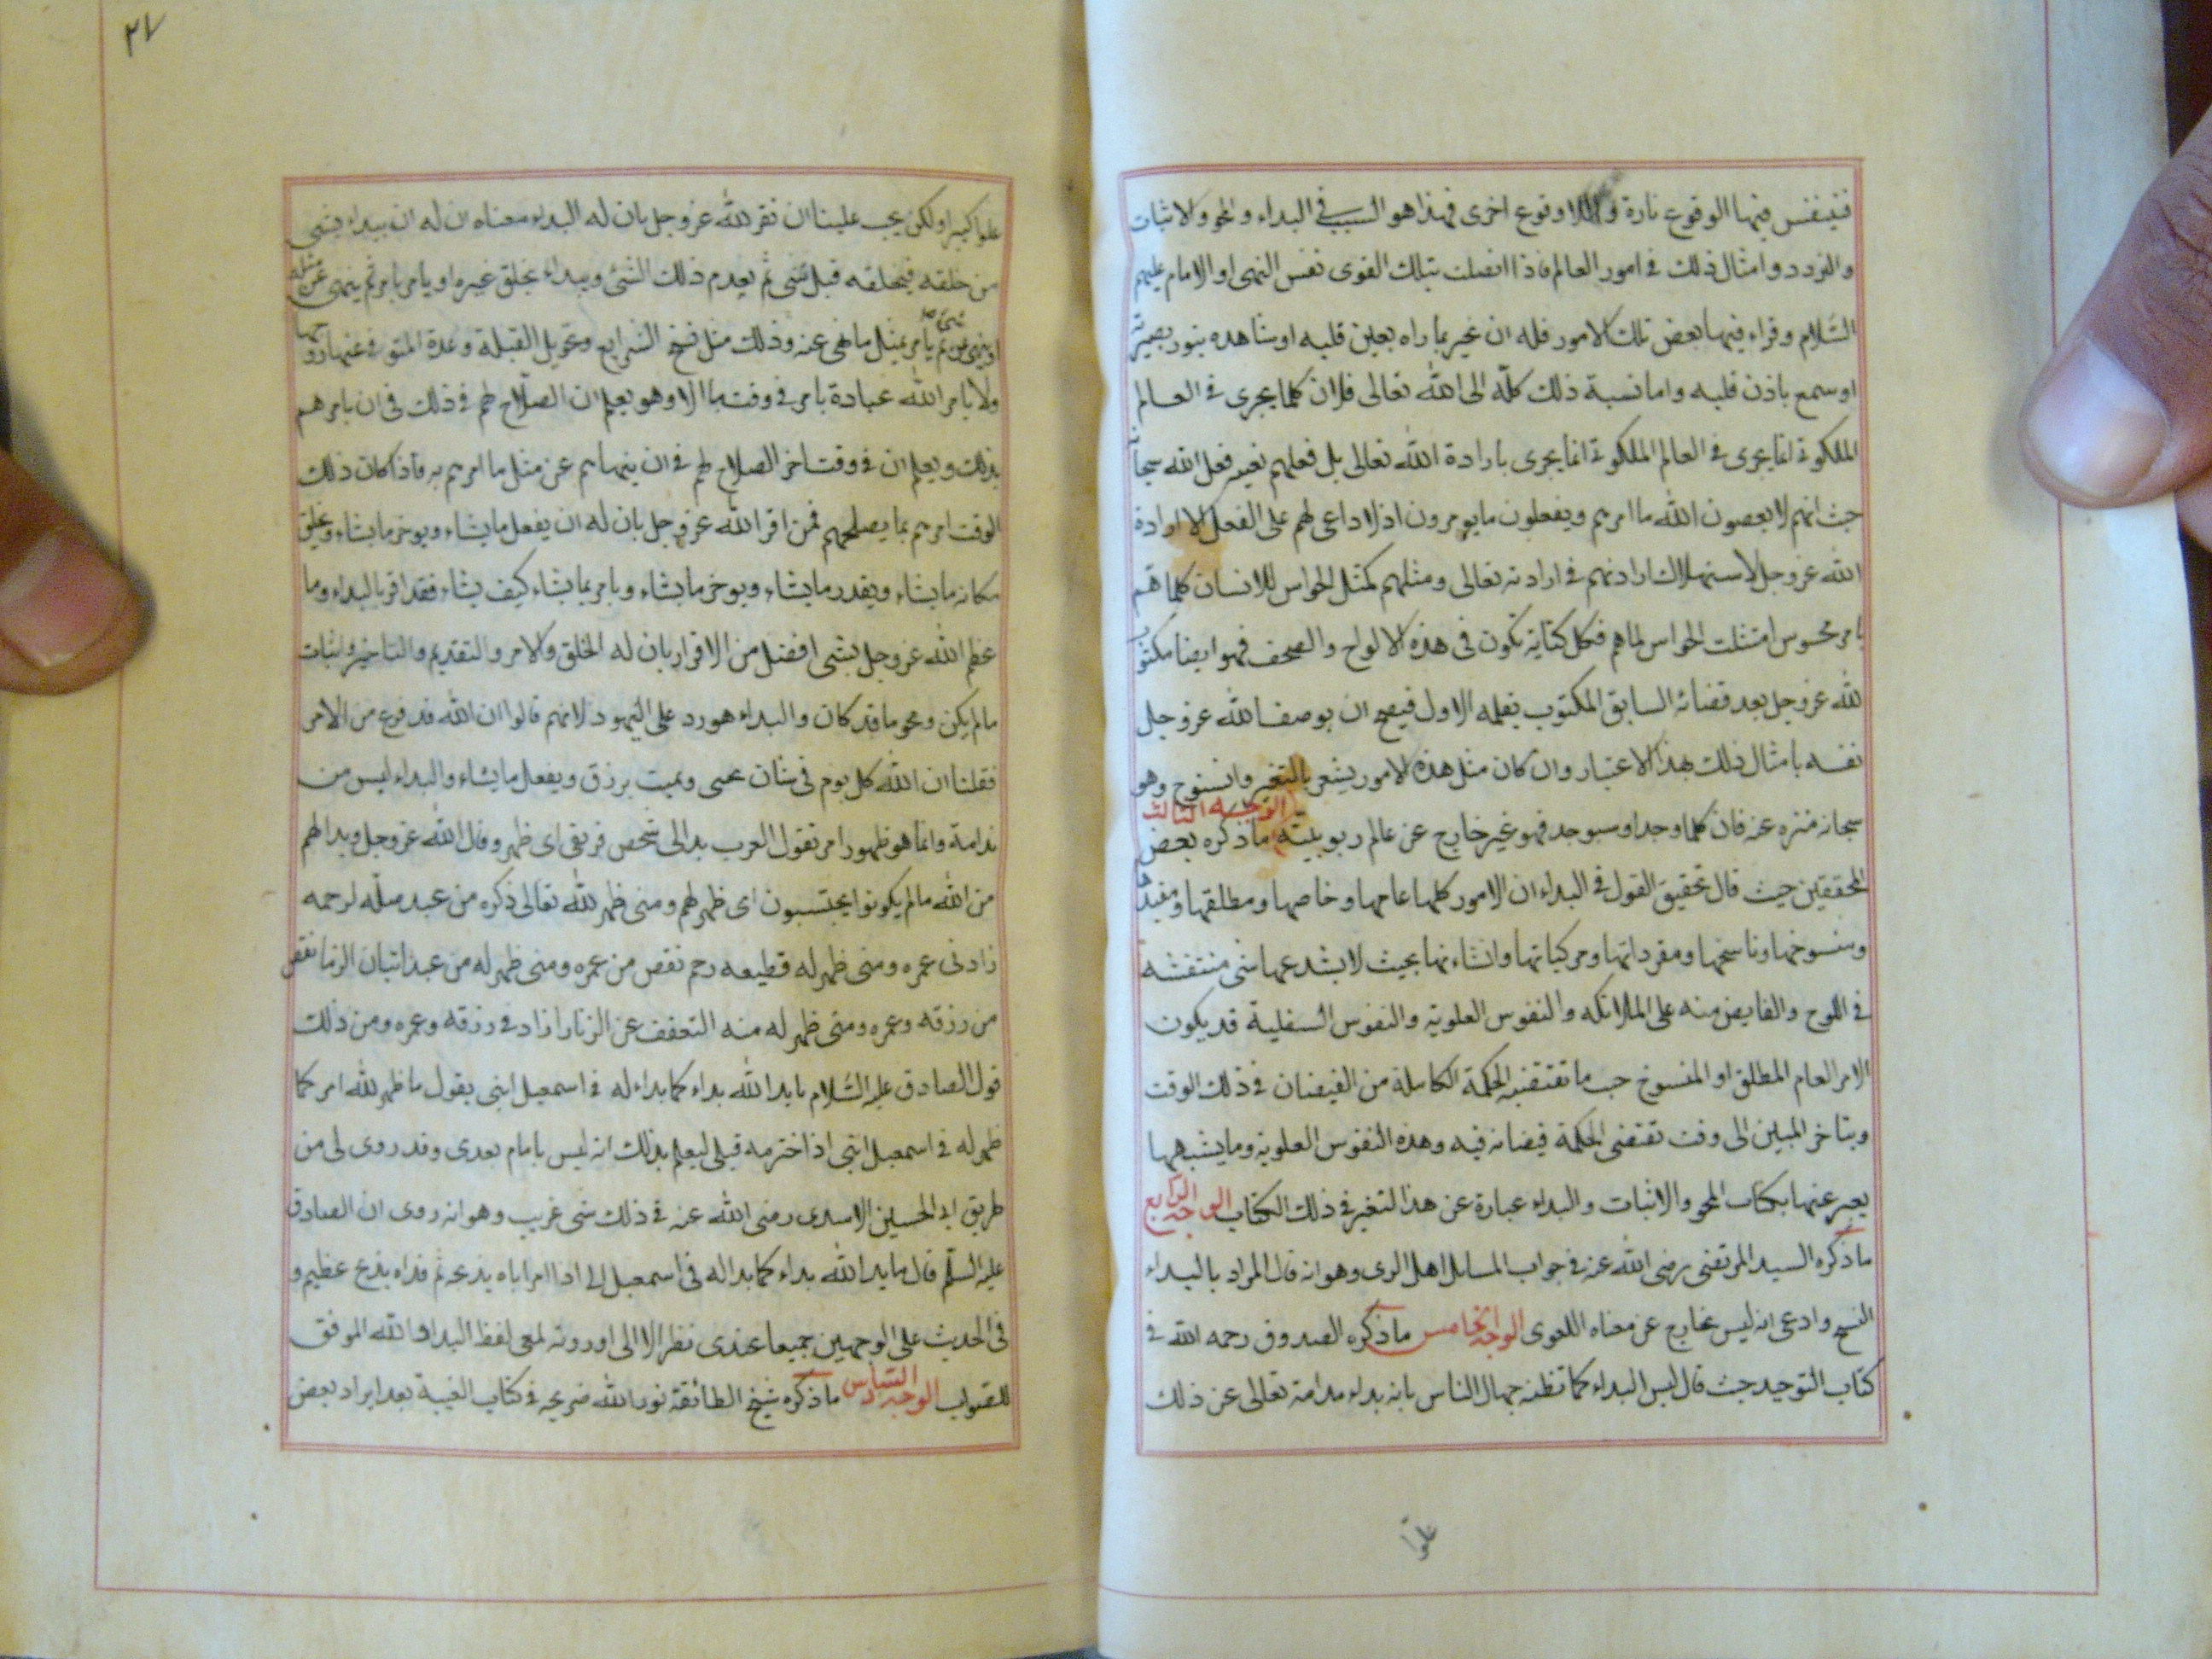 فينفس فيها الوقوع تارة واللاوقوع اخرى فهذا هو السبب في البداء والمحو والاثبات
والتردد وامثال ذلك في امور العالم فاذا اتصلت بتلك القوى نفس النبى او الامام عليهم
السَّلام وقراء فيها بعض تلك الامور فله ان يخبر بما راه بعين قلبه او شاهده بنور بصيرته
او سمع باذن قلبه واما نسبة ذلك كلّه الى الله تعالى فلان كلما يجرى في العالم
الملكوتى انما يجرى في العالم الملكوتى انما يجرى بارادة الله تعالى بل فعلهم بعينه فعل الله سبحانه
حيث انهم لا يعصون الله ما امرهم ويفعلون ما يومرون اذ لا داعى لهم على الفعل الا ارادة
الله عز وجل لاستهلاك ارادتهم في ارادته تعالى ومثلهم كمثل الحواس للانسان كلما همّ
بامر محسوس امتثلت الحواس لما هم فكل كتابة تكون في هذه الالواح والصحف فهو ايضا مكتوب
لله عز وجل بعد قضائه السابق المكتوب بقلمه الاول فيصح ان يوصف الله عز وجل
نفسه بامثال ذلك بهذا الاعتبار وان كان مثل هذه الامور يشعر بالتغير والسنوح وهو
سبحانه منزه عنه فان كلما وجد او سيوجد فهو غير خارج عن عالم ربوبيته الوجه الثالث ما ذكره بعض
المحققين حيث قال تحقيق القول في البداء ان الامور كلها عامها وخاصها ومطلقها ومقيدها
ومنسوخها وناسخها ومفرداتها ومركباتها وانشاءتها بحيث لا يشد عنها شى منتقشة
في اللوح والفايض منه على الملائكة والنفوس العلوية والنفوس السفلية قد يكون
الامر العام المطلق او المنسوخ حسب ما تقتضيه الحكمة الكاملة من الفيضان في ذلك الوقت
ويتاخر المبين الى وقت تقتضى الحكمة فيضانه فيه وهذه النفوس العلوية وما يشبهها
يعبر عنها بكتاب المحو والاثبات والبداء عبارة عن هذا التغير في ذلك الكتاب الوجه الرابع
ما ذكره السيد المرتضى رضى الله عنه في جواب المسايل اهل الرى وهو انه قال المراد بالبداء
النسخ وادعى انه ليس بخارج عن معناه اللغوى الوجه الخامس ما ذكره الصدوق رحمه الله في
كتاب التوحيد حيث قال ليس البداء كما تظنه جهال الناس بانه بداء ندامة تعالى عن ذلك
علوّا
٣٧
علوا كبيرا ولكن يجب علينا ان نقر لله عز وجل بان له البداء معناه ان له ان يبداء بشى
من خلقه فيخلقه قبل شى ثم يعدم ذلك الشئ ويبداء بخلق غيره او يامر بامر ثم ينهى عن مثله
او ينهى عن شئ ثم يامر بمثل ما نهى عنه وذلك مثل نسخ الشرايع وتحويل القبلة وعدة المتوفى عنها زوجها
ولا يامر الله عبادة بامر في وقت ما الا وهو يعلم ان الصلاح لهم في ذلك في ان يامرهم
بذلك ويعلم ان في وقت اخر الصلاح لهم في ان ينهاهم عن مثل ما امرهم به فاذا كان ذلك
الوقت امرهم بما يصلحهم فمن اقر الله عز وجل بان له ان يفعل ما يشاء ويوخر ما يشاء ويخلق
مكانه ما يشاء ويقدر ما يشاء ويوخر ما يشاء ويامر بما يشاء كيف يشاء فقد اقر بالبداء وما
عظم الله عز وجل بشى افضل من الاقرار بان له الخلق والامر والتقديم والتاخير واثبات
ما لم يكن ومحو ما قد كان والبداء هو رد على اليهود لانهم قالوا ان الله قد فرغ من الامر
فقلنا ان الله كل يوم في شان يحيى ويميت يرزق ويفعل ما يشاء والبداء ليس من
ندامة وانما هو ظهور امر تقول العرب بدا لى شخص فى طريقى اى ظهر وقال الله عز وجل وبدا لهم
من الله ما لم يكونوا يحتسبون اى ظهر لهم ومتى ظهر لله تعالى ذكره من عبد صلة لرحمه
زاد في عمره ومتى ظهر له قطيعة رحم نقص من عمره ومتى ظهر له من عبد اتيان الزنا نقص
من رزقه وعمره ومتى ظهر له منه التعفف عن الزنا زاد في رزقه وعمره ومن ذلك
قول الصادق عليه السَّلام ما بدا لله بداء كما بداء له في اسمعيل ابنى يقول ما ظهر لله امر كما
ظهر له في اسمعيل ابنى اذ اخترمه قبلى ليعلم بذلك انه ليس بامام بعدى وقد روى لى من
طريق ابى الحسين الاسدى رضى الله عنه في ذلك شى غريب وهو انه روى ان الصادق
عليه السلم قال ما بدا لله بداء كما بدا له في اسمعيل ابى اذا امر اباه بذبحه ثم فداه بذبح عظيم و
في الحديث على الوجهين جميعا عندى نظر الا انى اوردته لمعنى لفظ البداء والله الموفق
للصواب الوجه السادس ما ذكره شيخ الطائفة نور الله ضريحه في كتاب الغيبة بعد ايراد بعض